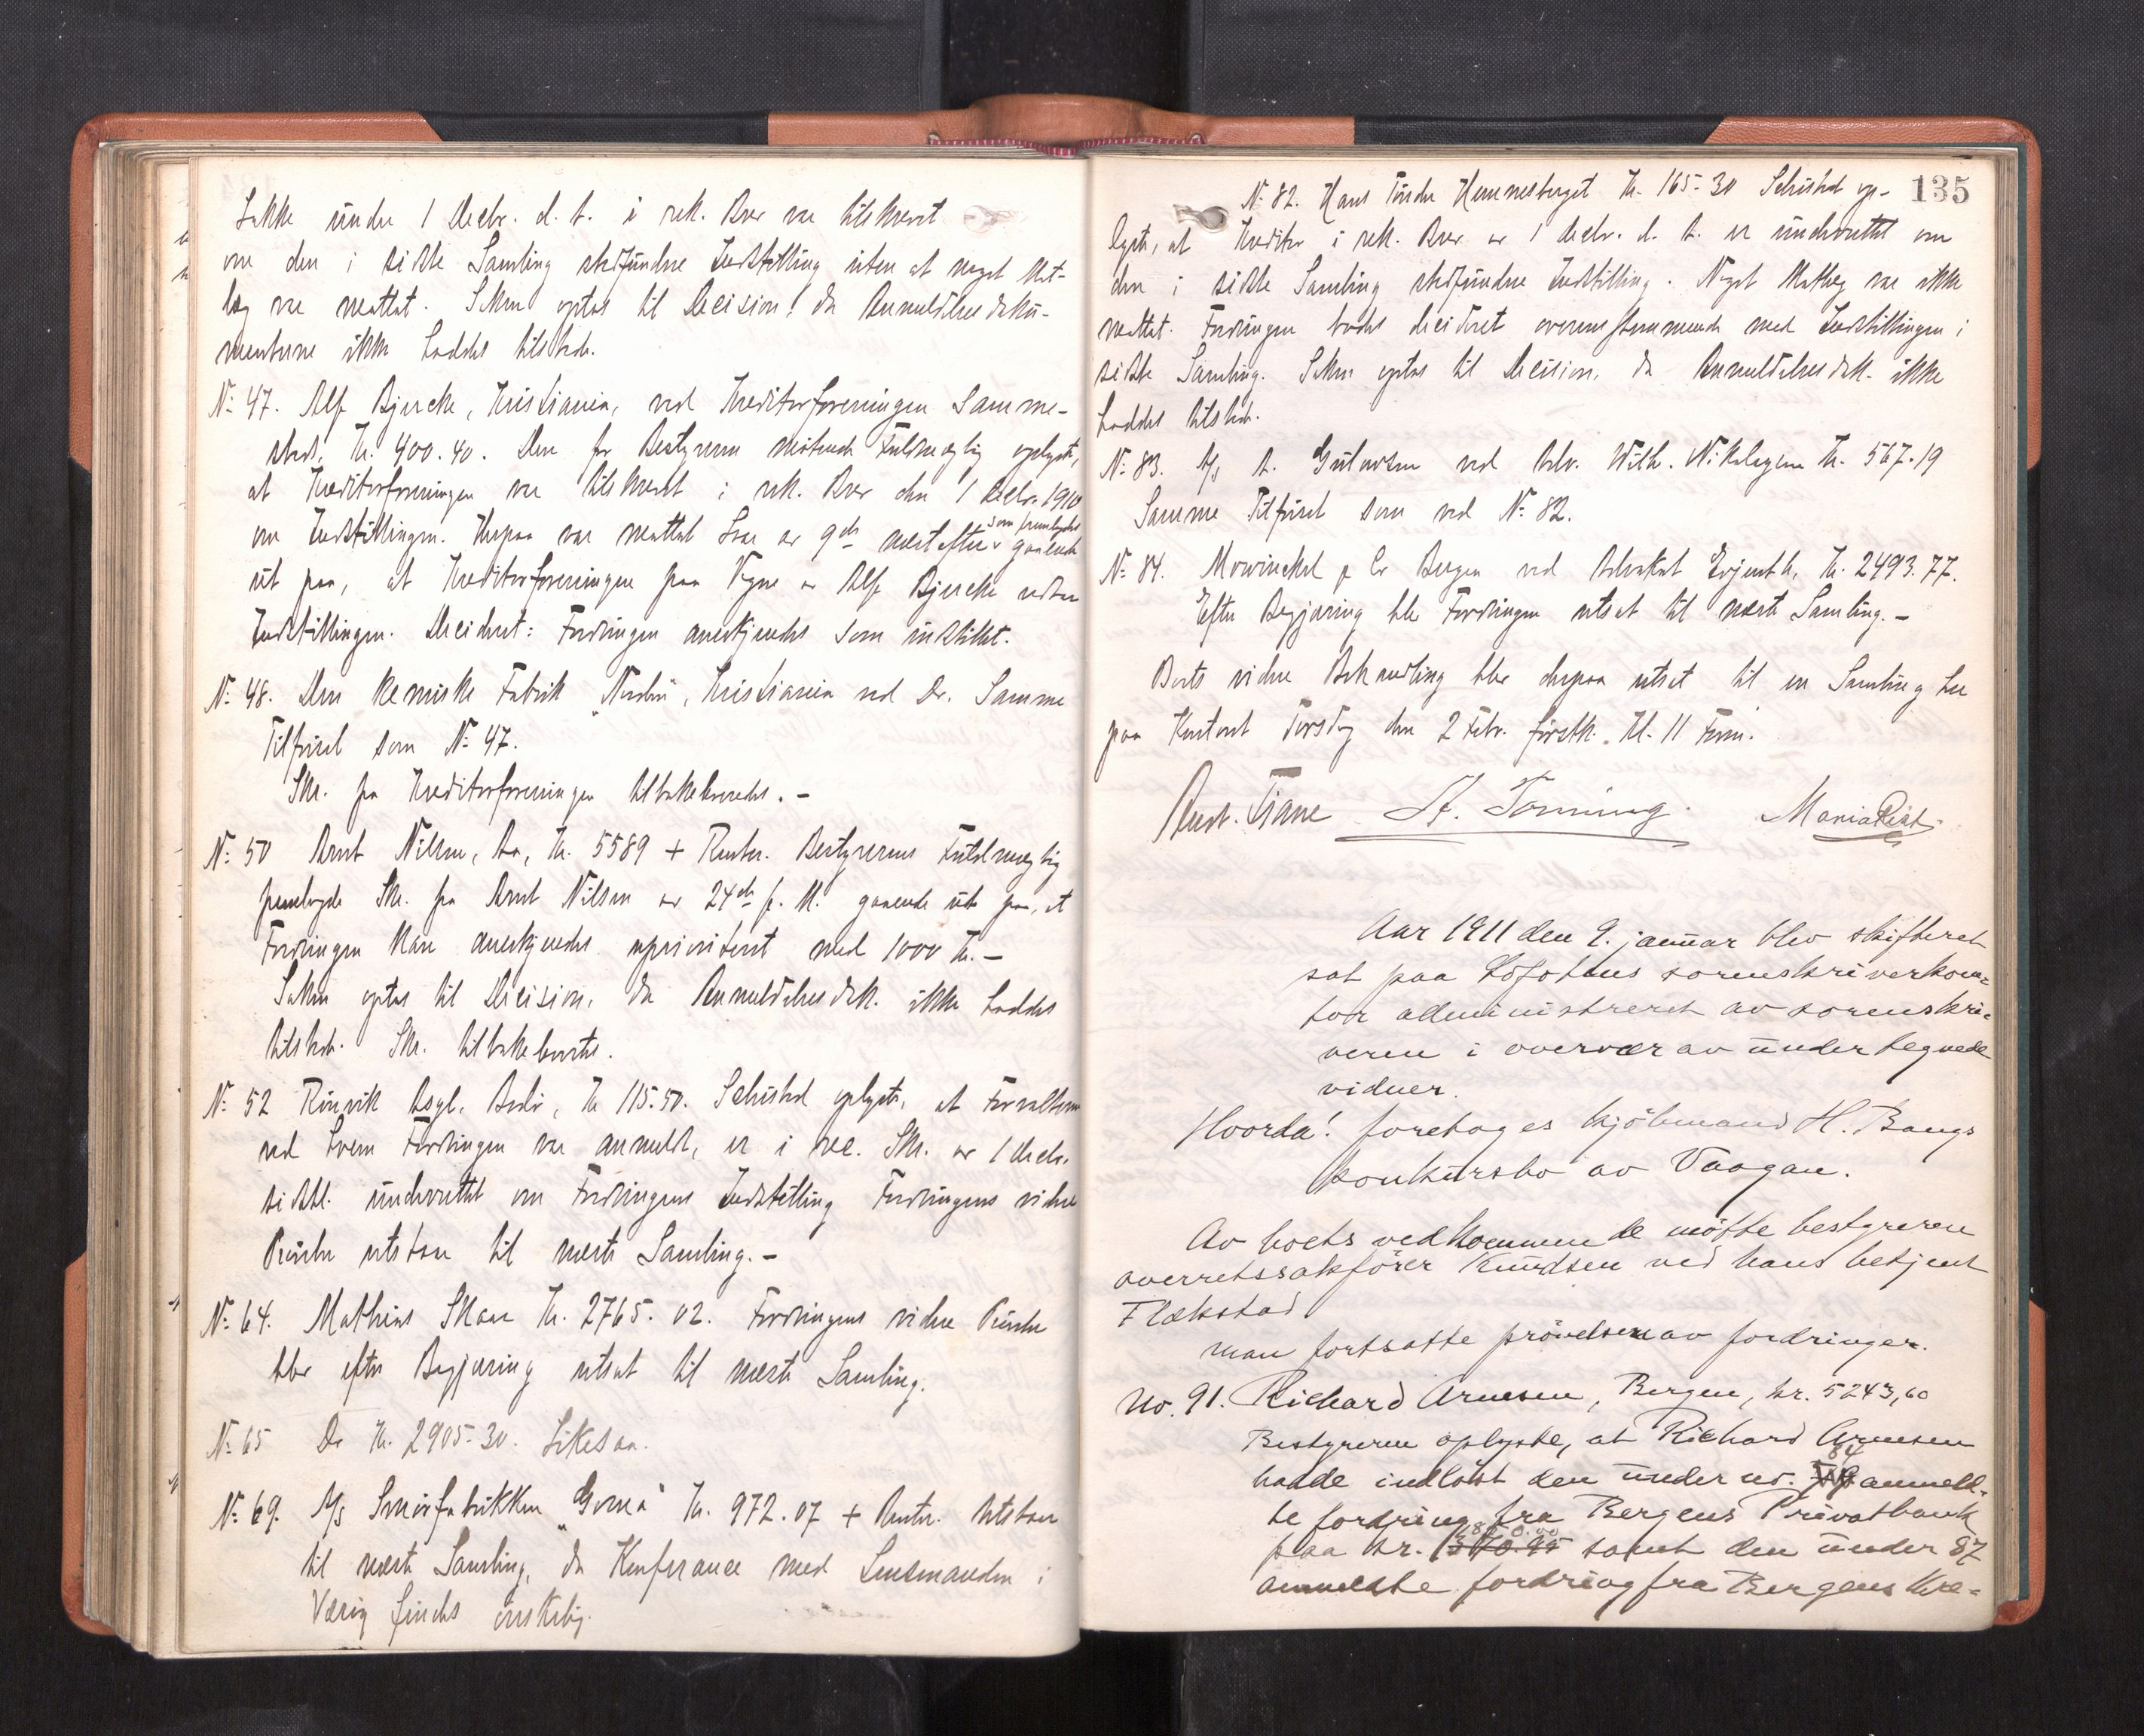 Lekke under 1 Decbr. d. A. i rek. Brev var tilskrevet
om den i sidste Samling stedfundne Indstilling uten at noget Mot-
læg var mottat. Saken optas til Decision, da Anmeldelsesdoku-
menterne ikke haddes tilstede.
No 47. Alf Bjercke, Kristiania, ved Kreditorforeningen Samme-
steds, Kr. 400.40. Den for Bestyreren møtende Fuldmægtig oplyste,
at Kreditorforeningen var tilskrevet i rek. Brev den 1 Decbr. 1910
om Indstillingen. Herpaa var mottat Svar av 9de næstefter som fremlagdes gaaende
ut paa, at Kreditorforeningen paa Vegne av Alf Bjercke vedtar
Indstillingen. Decideret: Fordringen anerkjendes som indstillet.
No 48. Den kemiske Fabrik "Norden", Kristiania ved Do. Samme
Tilførsel som No 47.
Skr. fra Kreditorforeningen tilbakeleveredes. -
No 50 Arnt Nilsen, Aa, Kr. 5589 + Renter. Bestyrerens Fuldmægtig
fremlagde Skr. fra Arnt Nilsen av 24de f. M. gaaende ut paa, at
Fordringen kan anerkjendes uprioritert med 1000 Kr. -
Saken optas til Decision, da Anmeldelsesdok. ikke haddes
tilstede. Skr. tilbakeleverte.
No 52 Rønvik Asyl, Bodø, Kr 115.50. Schistad oplyste, at Forvalteren
ved hvem Fordringen var anmeldt, er i rec. Skr. av 1 Decbr.
sidstl. underrettet om Fordringens Indstilling Fordringens videre
Prøvelse utstaar til næste Samling. -
No 64. Mathias Skaar Kr. 2765.02. Fordringens videre Prøvelse
blev efter Begjæring utsat til næste Samling.
No 65 Do Kr. 2905.30. Likesaa.
No 69. A/s Smørfabrikken "Goma" Kr. 972.07 + Renter. Utstaar
til næste Samling, da Konferance med Lensmanden i
Værøy findes ønskelig.
135
No 82. Hans Tønder Hemnesberget Kr. 165.30 Schistad op-
lyste, at Kreditor i rek. Brev av 1 decbr. d. A. er underrettet om
den i sidste Samling stedfundne Indstilling. Noget Motlæg var ikke
mottat. Fordringen haddes decideret overensstemmende med Indstillingen i
sidste Samling. Saken optas til Decision, da Anmeldelsesdok. ikke
haddes tilstede.
No 83. A/s A. Gulowsen ved Adv. Wilh. Nikolaysen Kr. 567.19
Samme Tilførsel som ved No 82.
No 84. Mowinckel & Co Bergen ved Advokat Evjenth, Kr. 2493.77.
Efter Begjæring blev Fordringen utsat til næste Samling. -
Boets videre Behandling blev derpaa utsat til en Samling her
paa Kontoret Torsdag den 2 Febr. førstk. Kl. 11 Form.
Tiane A. Tønning. Maria
Aar 1911 den 9. januar blev skifteret
sat paa Lofotens sorenskriverkon-
tor administreret av sorenskri-
veren i overvær av undertegnede
vidner.
Hvorda! foretoges kjøbmand H. Bangs
konkursbo av Vaagan.
Av boets vedkommende møtte bestyreren
overretssakfører Knudsen ved hans betjent
Flækstad
man fortsatte prøvelsen av fordringer.
No. 91. Richard Arnesen, Bergen, kr. 5243,60
Bestyreren oplyste, at Richard Arnesen
hadde indløst den under no. 84 anmeld-
te fordring fra Bergens Privatbank
paa kr. samt den under 87
anmeldte fordring fra Bergens Kre-